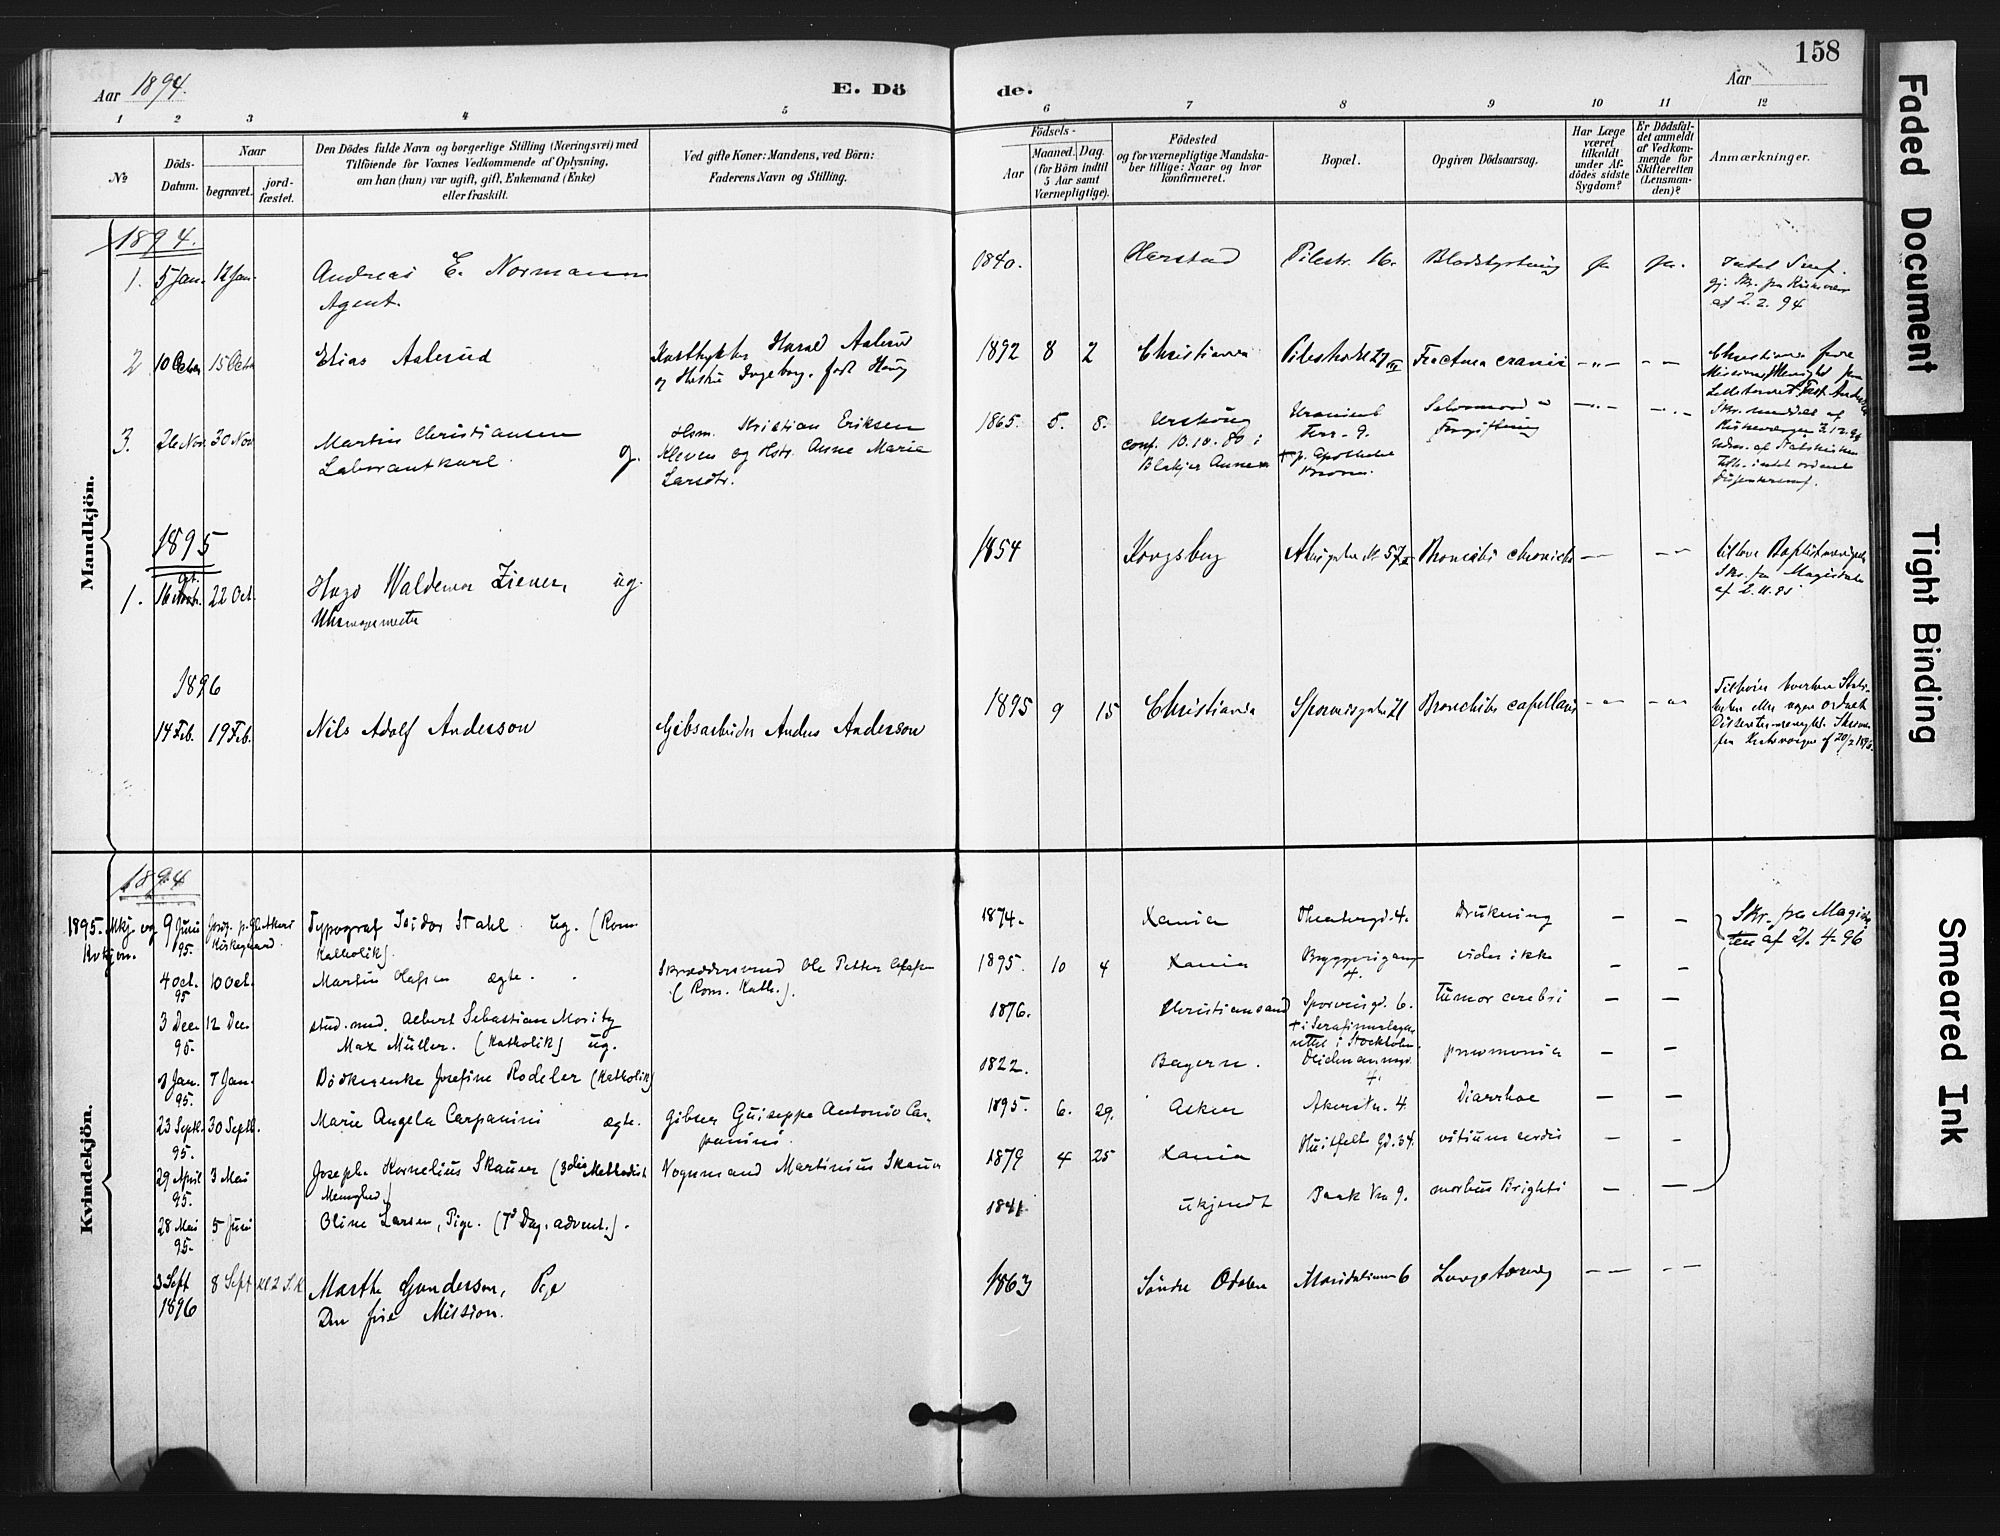 Aar 1894.
E. Dö
de.
Aar
158
1 2 3 4 5 6 7 8 9 10 11 12
№
Döds-
Datum.
Naar
begravet.
jord-
fæstet.
Den Dödes fulde Navn og borgerlige Stilling (Næringsvei) med
Tilföiende for Voxnes Vedkommende af Oplysning,
om han (hun) var ugift, gift, Enkemand (Enke)
eller fraskilt.
Ved gifte Koner: Mandens, ved Börn:
Faderens Navn og Stilling.
Födsels-
Aar
Maaned.
Dag.
(for Börn indtil
5 Aar samt
Værnepligtige).
Födested
og for værnepligtige Mandska-
ber tillige: Naar og hvor
konfirmeret.
Bopæl.
Opgiven Dödsaarsag.
Har Læge
været
tilkaldt
under Af-
dödes sidste
Sygdom?
Er Dödsfal-
det anmeldt
af Vedkom-
mende for
Skifteretten
(Lensman-
den)?
Anmærkninger.
Mandkjön.
1894.
1. 5 Jan. 12 Jan. Andreas E. Normann
Agent.
1840. Harstad Pilestr. 16. Blodstyrtning
af 2. 2. 94
2 10 Octbr 15 Octbr Elias Aalerud Harald Aalerud
og Hustru Ingeborg, født Haug
1892 8 2 Christiania Fractura cranii
3. 26 Nov. 30 Nov Martin Christiansen
Laborantkarl. g.
Hsm. Kristian Eriksen
Kleven og Hstr. Anne Marie
Larsdtr.
1865. 5. 8. Urskoug
conf. 10.10.80 i
Blakjer Annex
Uranienb
Terr. 9.
+ p. Apotheket
Selvmord
Forgiftning
1895
1. 16 Oct. 22 Oct. Hugo Waldemar Ziener, ug.
Uhrmagermester
1854 Kongsberg Bronchitis chronica
Skr. fra Magistraten
af 2. 11. 95
1896
14 Feb. 19 Feb. Nils Adolf Anderson Gibsarbeider Anders Anderson
1895 9 15 Christiania Sporveisgaden 21 Bronchitis capillaris
Kvindekjön.
1894
1895. Mkj. og
Kvkjøn.
9 Juni
95.
Typograf Isidor Stahl. ug. (Rom.
Katholik).
1874. Xania Theatergd. 4. Drukning – –
Skr. fra Magistra
ten af 21. 4. 96
4 Oct.
95
10 Oct. Martin Olafsen ægte. Skræddersvend Ole Petter Olafsen
(Rom. Kath.).
1895. 10 4 Xania
4.
vides ikke – –
3 Dec
95.
12 Dec stud. med. Albert Sebastian Moritz
Max Müller. (Katholik) ug.
1876. Christianssand Sporveisgd. 6.
+ i Serafimerlaza-
rettet i Stockholm.
tumor cerebri – –
1 Jan.
95.
7 Jan. Dödkjenke Josefine Rodeler (Katholik)
1822. Bayern.
4.
pneumonia – –
23 Septb.
95.
30 Septb. Marie Angela Carpanini ægte. Gibser Guiseppe Antonio Car-
panini.
1895. 6. 29. Asker Akersvn. 4. Diarrhoe – –
29 April
95.
3 Mai Joseph Kornelius Skauer (3die Methodist
Menighed)
Vognmand Martinius Skauer
1879 4 25 Xania Huitfelts Gd. 34. vitium cordis – –
28 Mai
95.
5 Juni Oline Larsen, Pige. (7d Dag. advent.).
1841 ukjendt Park Vn 9. morbus Brighti – –
3 Sept
1896
8 Sept Kl 2 S. K. Marthe Gunderson, Pige
Den frie Mission.
1863 Søndre Odalen Maridalsvn 6 Lungetæring
Faded Document
Tight Binding
Smeared Ink